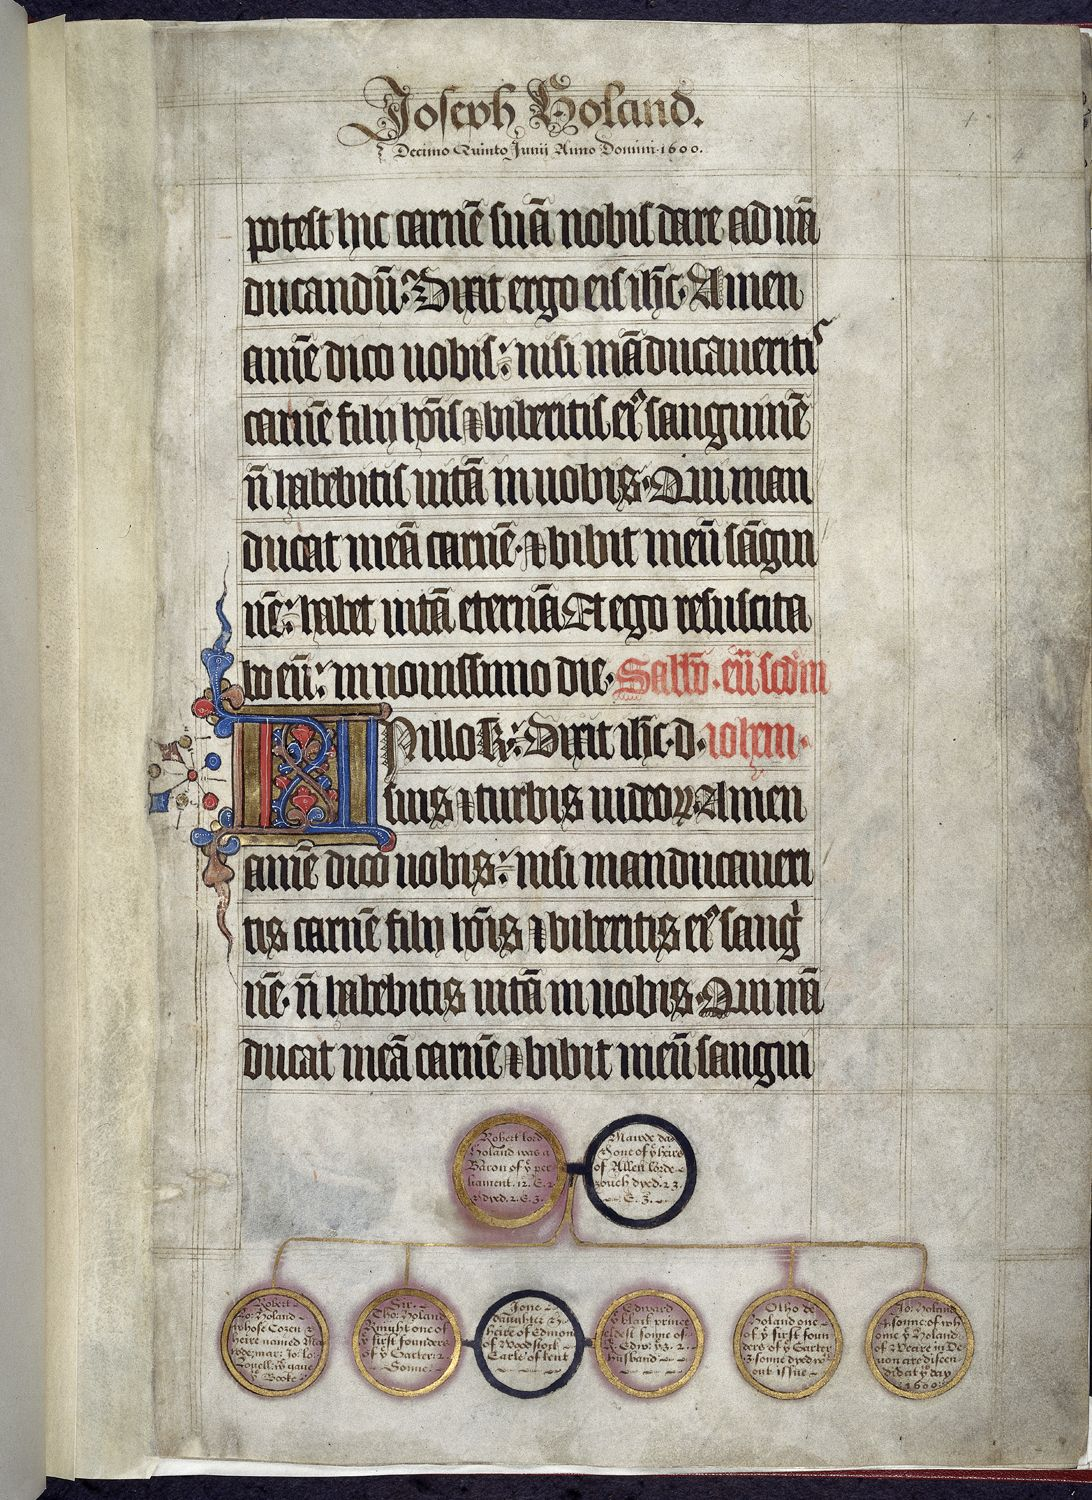 Joseph Holand.
Decimo Quinto Junij Anno Domini 1600.
potest hic carnē suā nobis dare ad mā
ducandū? Dixit ergo eis ihc. Amen
amē dico vobis: nisi māducaveritis
carnē filij hōis ⁊ biberitis eiꝰ sanguinē
n̄ habebitis vitā in vobis. Qui man
ducat meā carnē. ⁊ bibit meū sāgui
nē: habet vitā eternā Et ego resuscita
bo eū: in novissimo die.
N illo: Dixit ihc d
suis ⁊ turbis iudeoꝝ Amen
amē dico vobis: nisi manducaveri
tis carnē filij hōis ⁊ biberitis eiꝰ sang
nē. n̄ habebitis vitā in vobis. Qui mā
ducat meā carnē ⁊ bibit meū sangui
Robert lord
Holand was a
Baron of yͤ per
liament. 12. E. 2
& dyed. 2. E. 3.
Mawde das
& one of yͤ heirs
of Allen lorde
zouch dyed. 23.
E. 3.
Robert
Lo: Holand
whose Cozen &
heire named Ma
wde: mar: Jo: Lo:
Lovell: wͭ gave
yͤ Booke
Sir.
Tho: Holand
Knight one of
yͤ first founders
of yͤ Garter: 2
Sonne.
Jone
daughter &
heire of Edmon
of Woodstock
Earle of kent
Edward
yͤ black prince
eldest sonne of
K. Edw: yͤ 3. 2.
husband
Otho de
Holand one
of yͤ first foun
ders of yͤ Garter
3 sonne dyed wͭ
out issue
Jo: Holand
4. sonne of wh
ome yͤ Holand
of Weare in De
von are discen
ded at yͭ day
1600